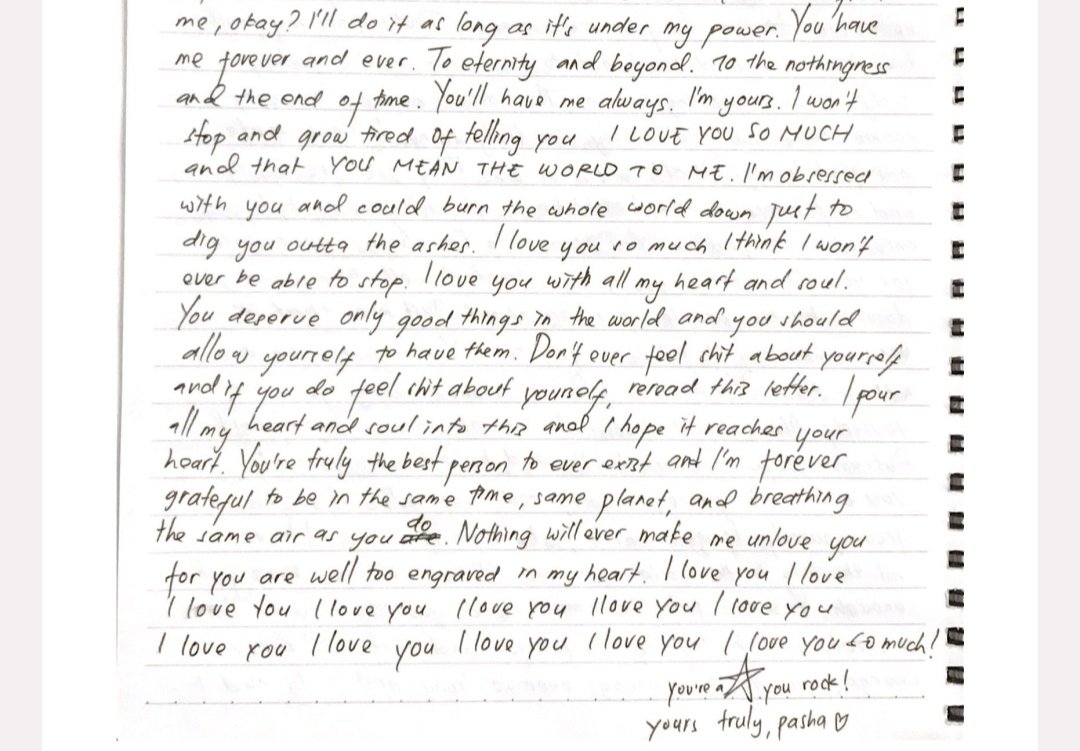 me, okay? I'll do it as long as it's under my power. You have
me forever and ever. To eternity and beyond. To the nothingness
and the end of time. You'll have me always. I'm yours. I won't
stop and grow tired of telling you I LOVE YOU SO MUCH
and that YOU MEAN THE WORLD TO ME. I'm obsessed
with you and could burn the whole world down just to
dig you outta the ashes. I love you so much I think I won't
ever be able to stop. I love you with all my heart and soul.
You deserve only good things in the world and you should
allow yourself to have them. Don't ever feel shit about yourself
and if you do feel shit about yourself, reread this letter. I pour
all my heart and soul into this and I hope it reaches your
heart. You're truly the best person to ever exist and I'm forever
grateful to be in the same time, same planet, and breathing
the same air as you do. Nothing will ever make me unlove you
for you are well too engraved in my heart. I love you I love
I love you I love you I love you I love you I love you
I love you I love you I love you I love you I love you so much!
you're a ☆ you rock!
yours truly, pasha ♡